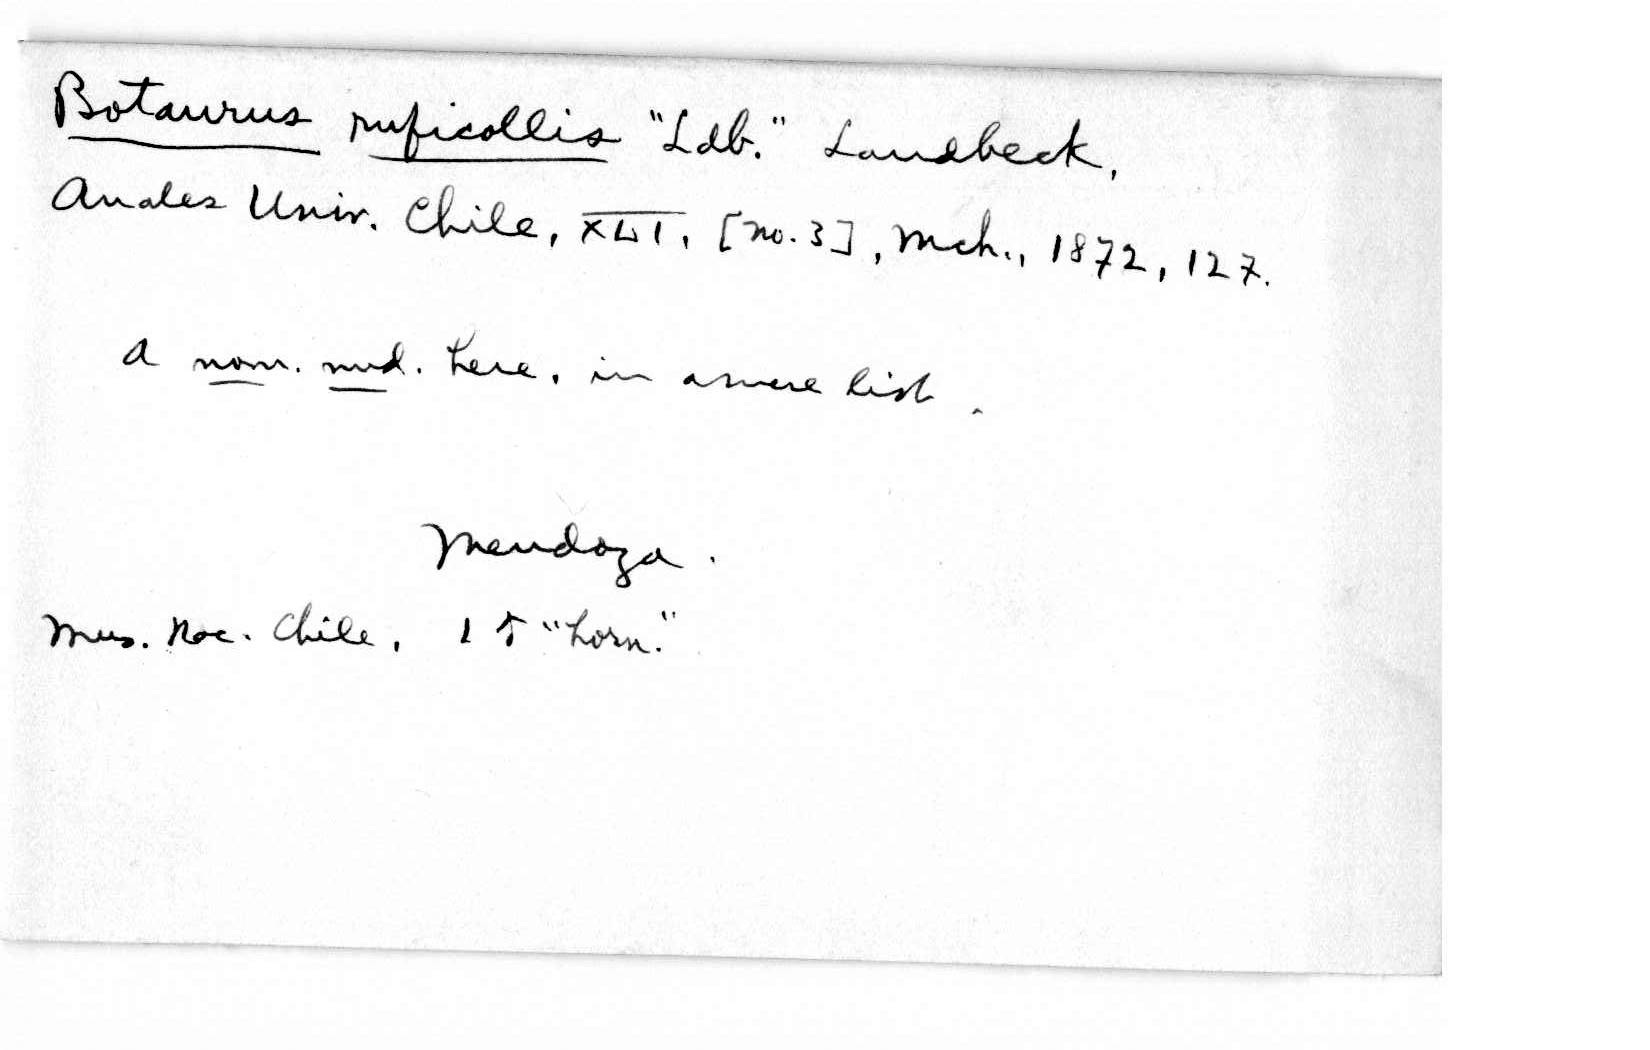 Botaurus ruficollis "Ldb." Landbeck,
Anales Univ. Chile, XLI, [no. 3], Mch., 1872, 127.
A nom. nud. here, in a mere list.
Mendoza.
Mus. Nac. Chile, 1 "horn."